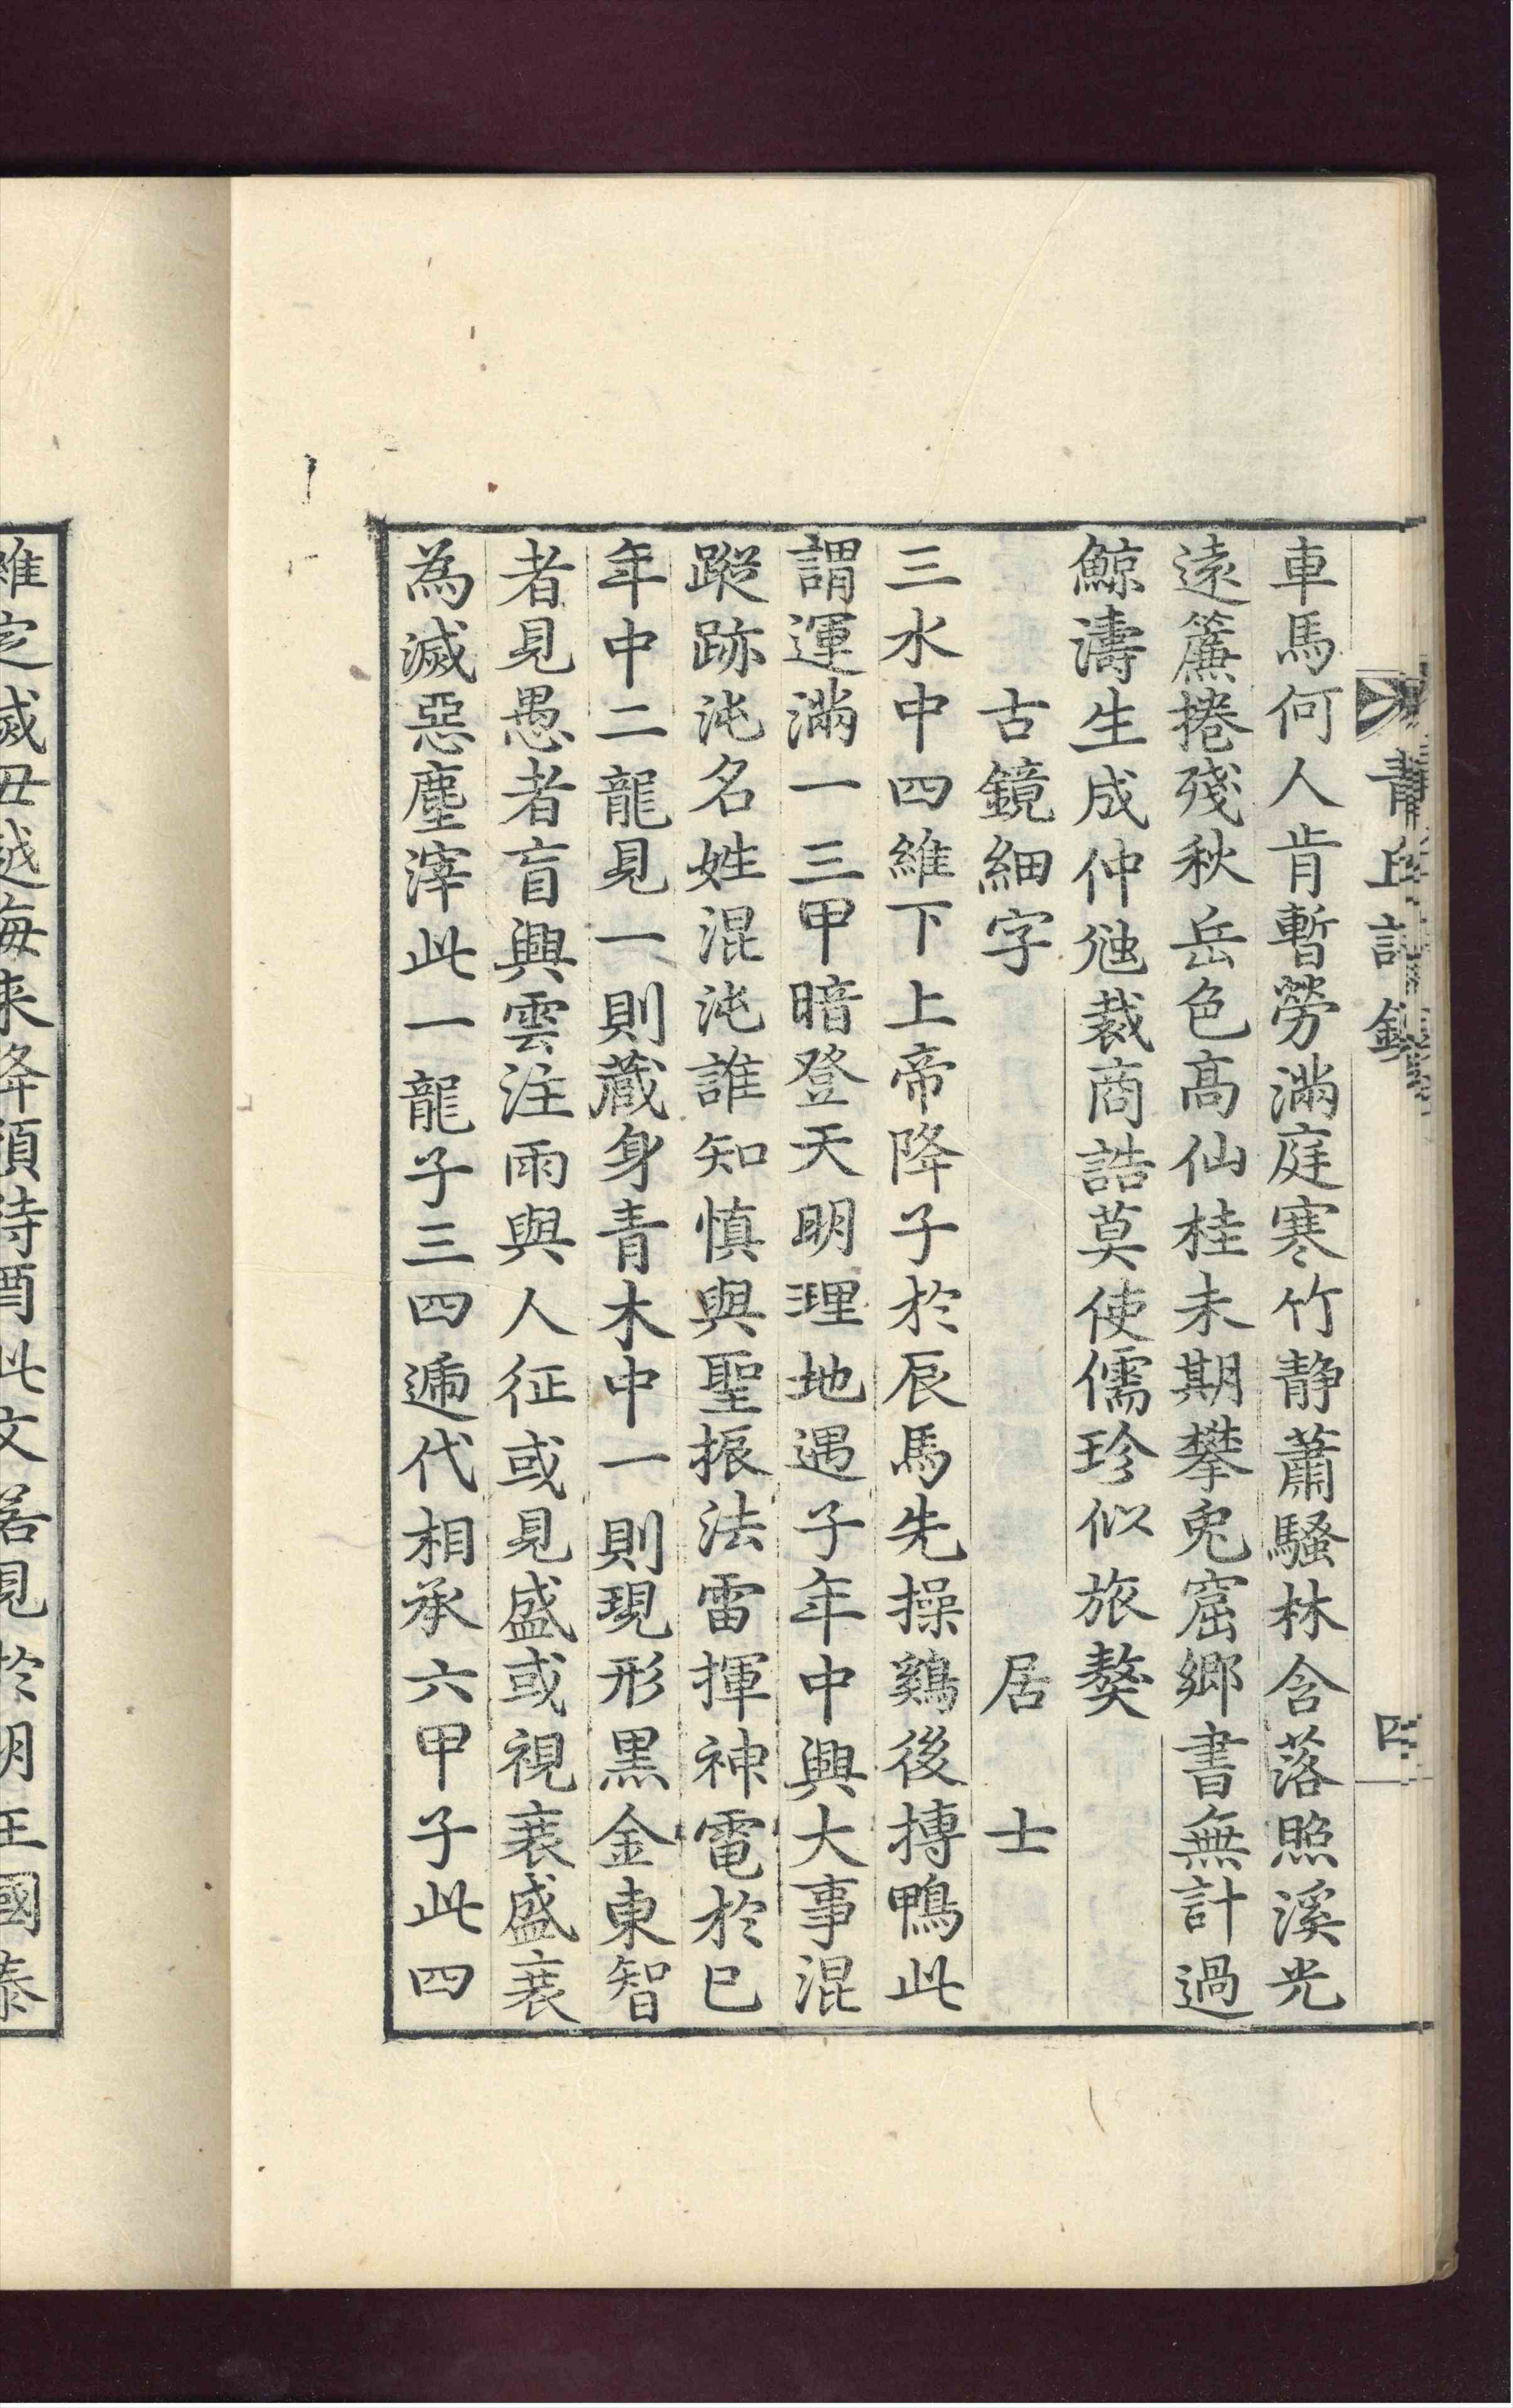 車馬何人肯暫勞滿庭寒竹静蕭騷林含落照溪光
遠簾捲殘秋岳色高仙桂未期攀兎窟鄉書無計過
鯨濤生成仲虺裁商誥莫使儒珍似旅獒
古鏡細字 居士
三水中四維下上帝降子於辰馬先操鷄後搏鴨此
謂運滿一三甲暗登天明理地遇子年中興大事混
蹤跡沌名姓混沌誰知慎與聖振法雷揮神電於巳
年中二龍見一則蔵身青木中一則現形黒金東智
者見愚者盲興雲注雨與人征或見盛或視衰盛衰
為滅惡塵滓此一龍子三四遞代相承六甲子此四
維定滅丑越海来降須待酉此文若見於明王國泰